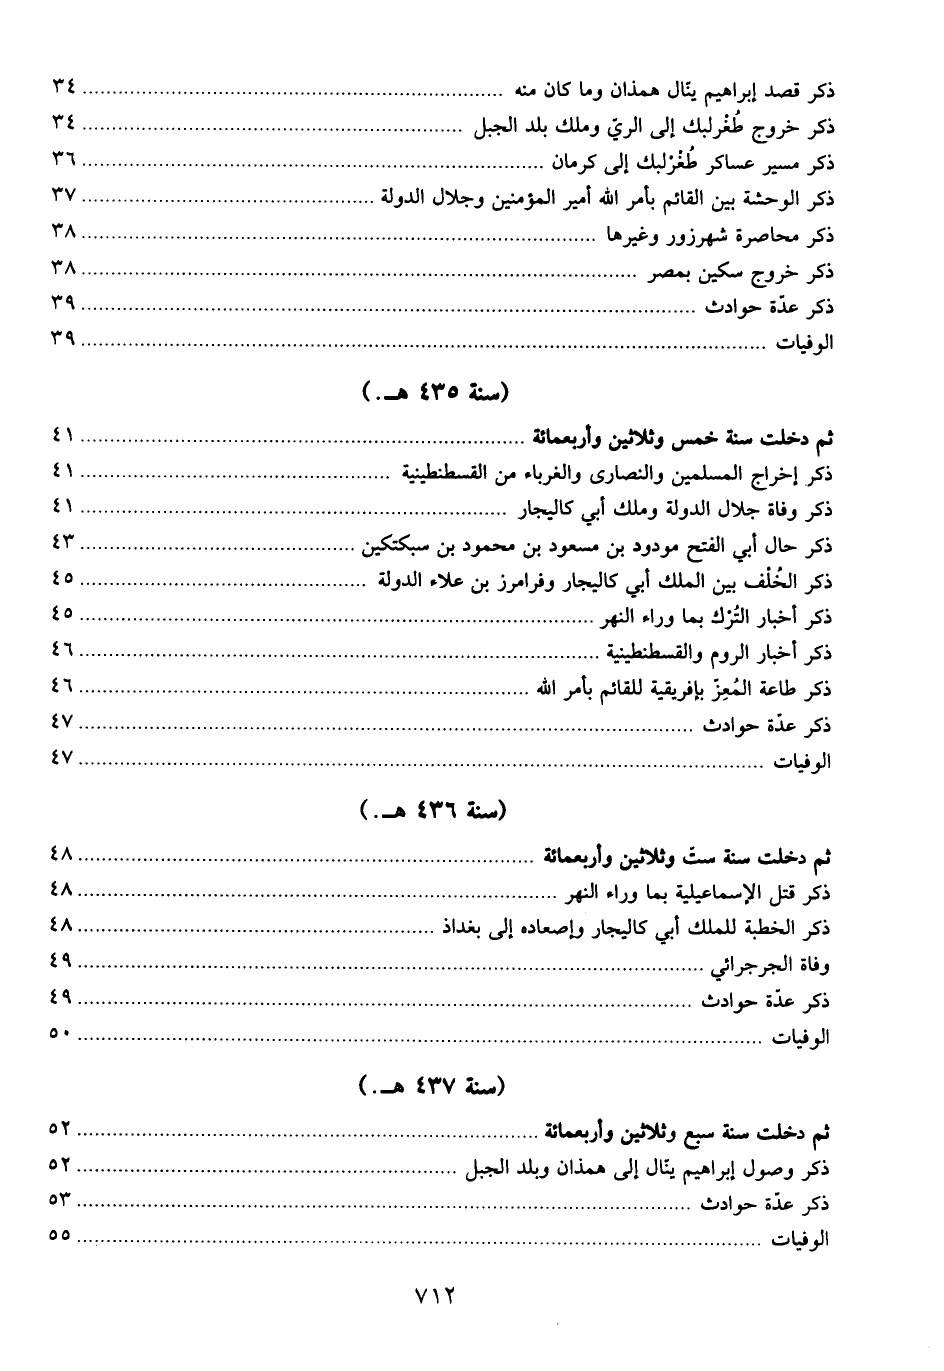 ذكر قصد إبراهيم ينّال همذان وما كان منه ................ ٣٤
ذكر خروج طُغْرلبك إلى الريّ وملك بلد الجبل ................ ٣٤
ذكر مسير عساكر طُغْرْلبك إلى كرمان ................ ٣٦
ذكر الوحشة بين القائم بأمر الله أمير المؤمنين وجلال الدولة ................ ٣٧
ذكر محاصرة شهرزور وغيرها ................ ٣٨
ذكر خروج سكين بمصر ................ ٣٨
ذكر عدّة حوادث ................ ٣٩
الوفيات ................ ٣٩
(سنة ٤٣٥ هـ.)
ثم دخلت سنة خمس وثلاثين وأربعمائة ................ ٤١
ذكر إخراج المسلمين والنصارى والغرباء من القسطنطينية ................ ٤١
ذكر وفاة جلال الدولة وملك أبي كاليجار ................ ٤١
ذكر حال أبي الفتح مودود بن مسعود بن محمود بن سبكتكين ................ ٤٣
ذكر الخُلْف بين الملك أبي كاليجار وفرامرز بن علاء الدولة ................ ٤٥
ذكر أخبار التُرْك بما وراء النهر ................ ٤٥
ذكر أخبار الروم والقسطنطينية ................ ٤٦
ذكر طاعة المُعِزّ بإفريقية للقائم بأمر الله ................ ٤٦
ذكر عدّة حوادث ................ ٤٧
الوفيات ................ ٤٧
(سنة ٤٣٦ هـ.)
ثم دخلت سنة ستّ وثلاثين وأربعمائة ................ ٤٨
ذكر قتل الإسماعيلية بما وراء النهر ................ ٤٨
ذكر الخطبة للملك أبي كاليجار وإصعاده إلى بغداذ ................ ٤٨
وفاة الجرجرائي ................ ٤٩
ذكر عدّة حوادث ................ ٤٩
الوفيات ................ ٥٠
(سنة ٤٣٧ هـ.)
ثم دخلت سنة سبع وثلاثين وأربعمائة ................ ٥٢
ذكر وصول إبراهيم ينّال إلى همذان وبلد الجبل ................ ٥٢
ذكر عدّة حوادث ................ ٥٣
الوفيات ................ ٥٥
٧١٢